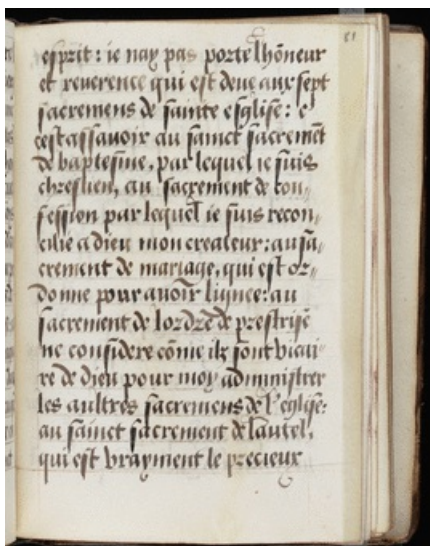 81
esprit: ie nay pas porte lhõneur
et reverence qui est deue aux sept
sacremens de sainte esglise: c
cest assavoir au sainct sacremẽt
de baptesme, par lequel ie suis
chrestien, au sacrement de con,,
fession par lequel ie suis recon,,
cilie a dieu mon createur: au sa,,
crement de mariage, qui est or,,
donne pour avoir lignee: au
sacrement de lordre de prestrise
ne considere cõme ilz sont vicai,,
re de dieu pour moy administrer
les aultres sacremens de l'eglise:
au sainct sacrement de lautel,
qui est vrayment le precieux